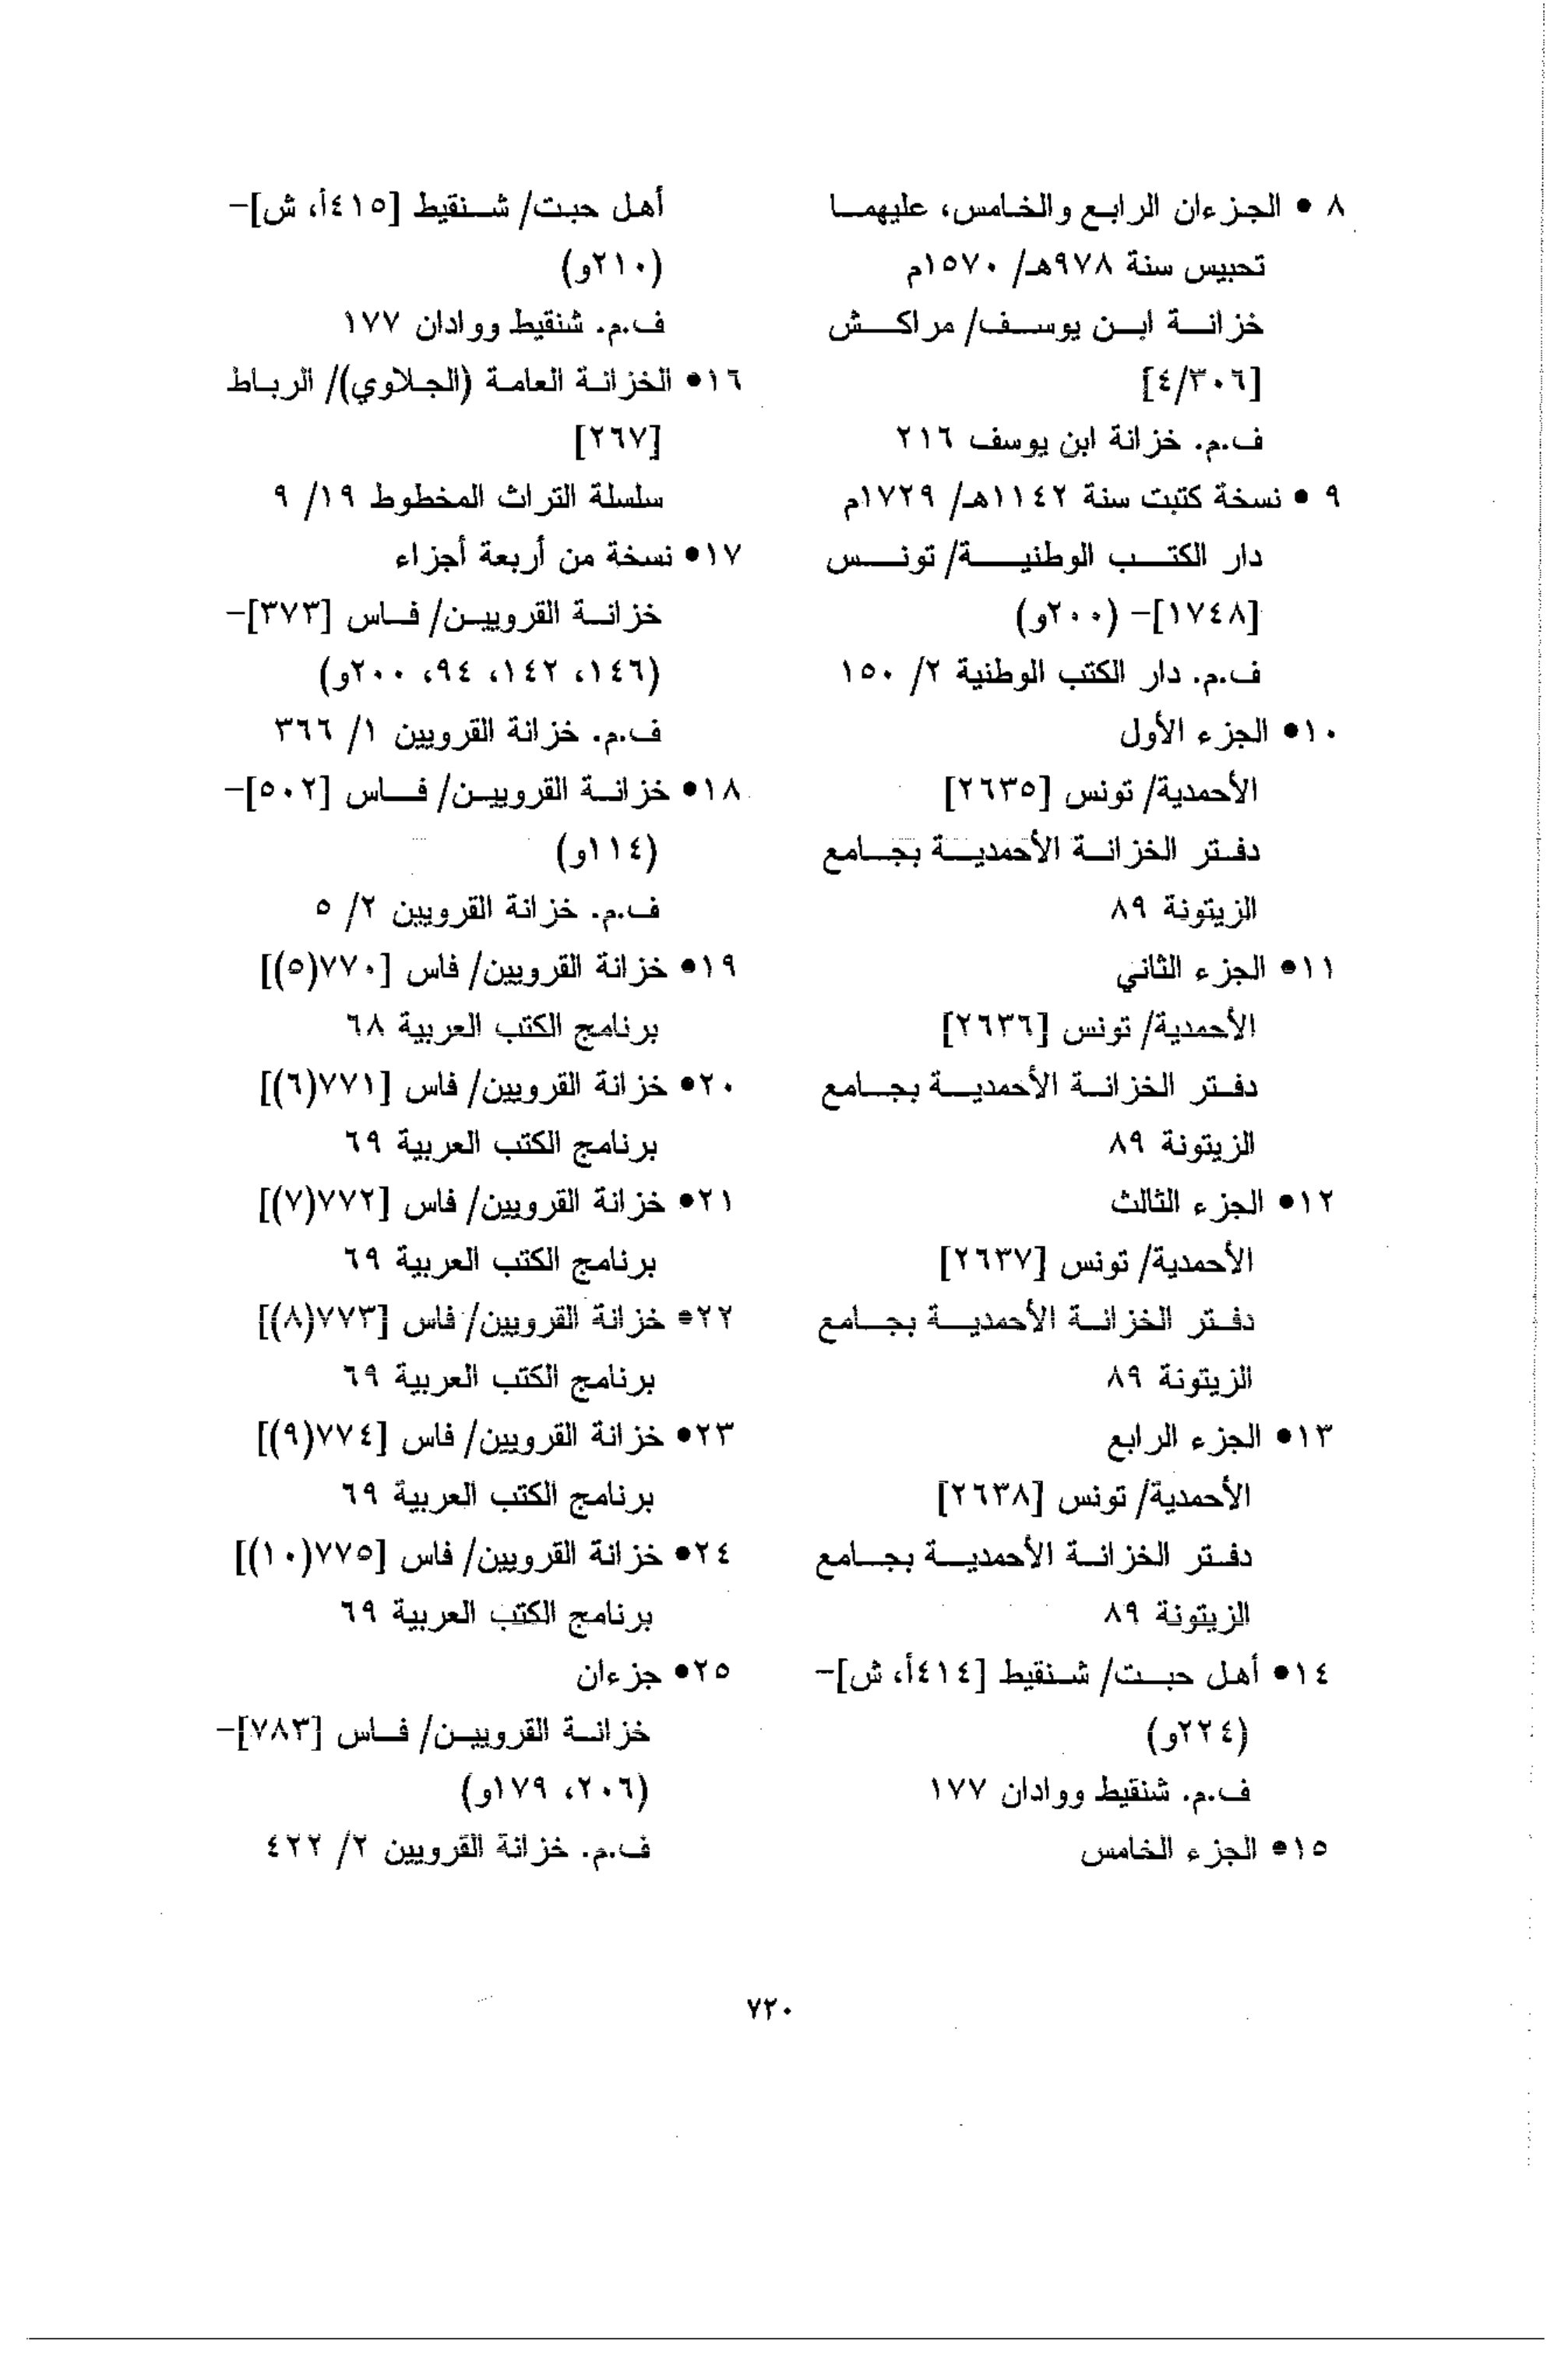 ٨ • الجزءان الرابع والخامس، عليهما
تحبيس سنة ٩٧٨هـ/ ١٥٧٠م
خزانة ابن يوسف/ مراكش
[٤/٣٠٦]
ف.م. خزانة ابن يوسف ٢١٦
٩ • نسخة كتبت سنة ١١٤٢هـ/ ١٧٢٩م
دار الكتب الوطنية/ تونس
[١٧٤٨]- (٢٠٠و)
ف.م. دار الكتب الوطنية ٢/ ١٥٠
١٠• الجزء الأول
الأحمدية/ تونس [٢٦٣٥]
دفتر الخزانة الأحمدية بجامع
الزيتونة ٨٩
١١• الجزء الثاني
الأحمدية/ تونس [٢٦٣٦]
دفتر الخزانة الأحمدية بجامع
الزيتونة ٨٩
١٢• الجزء الثالث
الأحمدية/ تونس [٢٦٣٧]
دفتر الخزانة الأحمدية بجامع
الزيتونة ٨٩
١٣• الجزء الرابع
الأحمدية/ تونس [٢٦٣٨]
دفتر الخزانة الأحمدية بجامع
الزيتونة ٨٩
١٤• أهل حبت/ شنقيط [٤١٤أ، ش]-
(٢٢٤و)
ف.م. شنقيط ووادان ١٧٧
١٥• الجزء الخامس
أهل حبت/ شنقيط [٤١٥أ، ش]-
(٢١٠و)
ف.م. شنقيط ووادان ١٧٧
١٦• الخزانة العامة (الجلاوي)/ الرباط
[٢٦٧]
سلسلة التراث المخطوط ١٩/ ٩
١٧• نسخة من أربعة أجزاء
خزانة القرويين/ فاس [٣٧٣]-
(١٤٦، ١٤٢، ٩٤، ٢٠٠و)
ف.م. خزانة القرويين ١/ ٣٦٦
١٨• خزانة القرويين/ فاس [٥٠٢]-
(١١٤و)
ف.م. خزانة القرويين ٢/ ٥
١٩• خزانة القرويين/ فاس [٧٧٠(٥)]
برنامج الكتب العربية ٦٨
٢٠• خزانة القرويين/ فاس [٧٧١(٦)]
برنامج الكتب العربية ٦٩
٢١• خزانة القرويين/ فاس [٧٧٢(٧)]
برنامج الكتب العربية ٦٩
٢٢• خزانة القرويين/ فاس [٧٧٣(٨)]
برنامج الكتب العربية ٦٩
٢٣• خزانة القرويين/ فاس [٧٧٤(٩)]
برنامج الكتب العربية ٦٩
٢٤• خزانة القرويين/ فاس [٧٧٥(١٠)]
برنامج الكتب العربية ٦٩
٢٥• جزءان
خزانة القرويين/ فاس [٧٨٣]-
(٢٠٦، ١٧٩و)
ف.م. خزانة القرويين ٢/ ٤٢٢
٧٢٠